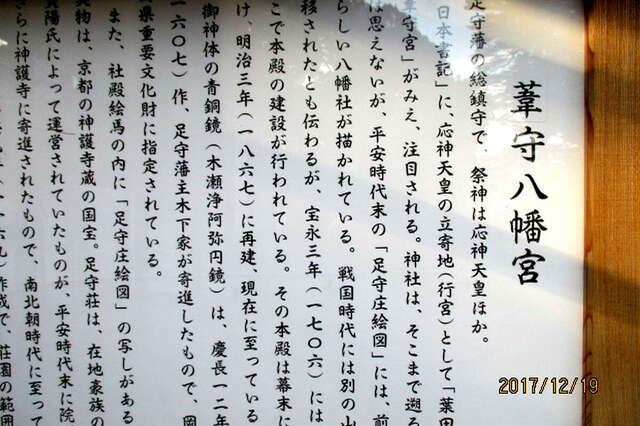 葦守八幡宮
足守藩の総鎮守で、祭神は応神天皇ほか。
日本書記』に、応神天皇の立寄地(行宮)として「葉田
葦守宮」がみえ、注目される。神社は、そこまで遡る
は思えないが、平安時代末の「足守庄絵図」には、前
らしい八幡社が描かれている。戦国時代には別の山
移されたとも伝わるが、宝永三年(一七〇六)には
こで本殿の建設が行われている。その本殿は幕末に
け、明治三年(一八六七)に再建、現在に至っている
御神体の青銅鏡(木瀬浄阿弥円鏡)は、慶長一二年
一六〇七)作、足守藩主木下家が寄進したもので、岡
県重要文化財に指定されている。
また、社殿絵馬の内に「足守庄絵図」の写しがある
物は、京都の神護寺蔵の国宝。足守荘は、在地豪族の
陽氏によって運営されていたものが、平安時代末に院
さらに神護寺に寄進されたもので、南北朝時代に至って
一六九)作成で、荘園の範囲
2017/12/19